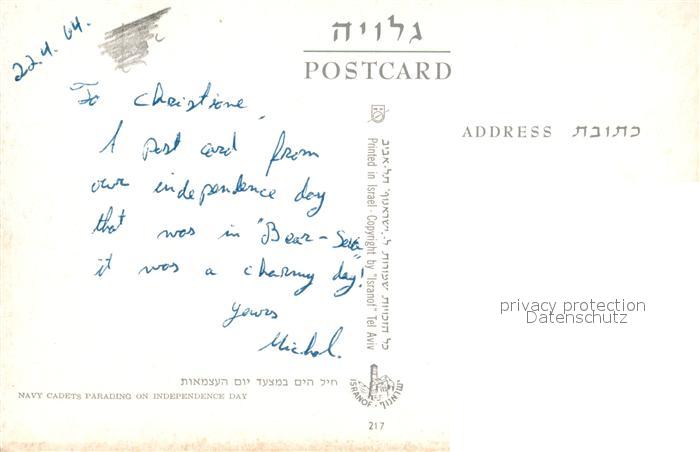 22.4.64.
גלויה
POSTCARD
To Christiane,
A post card from
our independence day
that was in "Bear-Seva"
it was a charmy day!
Yours
Michal.
ADDRESS כתובת
כל הזכויות שמורות ל"ישראנוף" תל-אביב
Printed in Israel · Copyright by "Isranof" Tel Aviv
privacy protection
Datenschutz
חיל הים במצעד יום העצמאות
NAVY CADETS PARADING ON INDEPENDENCE DAY
ISRANOF · ישראנוף
217